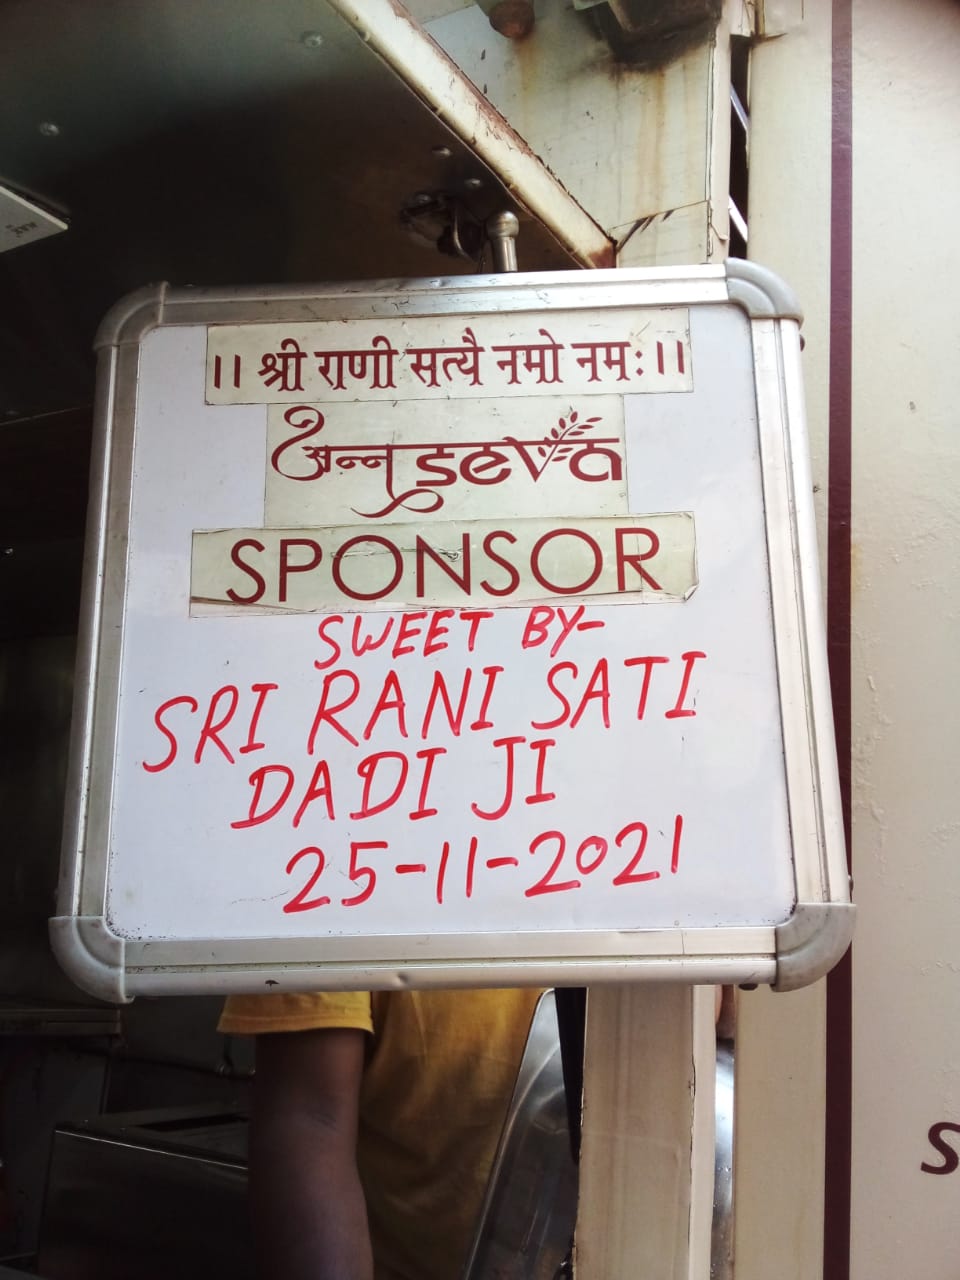 ।। श्री राणी सत्यै नमो नमः ।।
अन्न seva
SPONSOR
SWEET BY-
SRI RANI SATI
DADI JI
25-11-2021
S